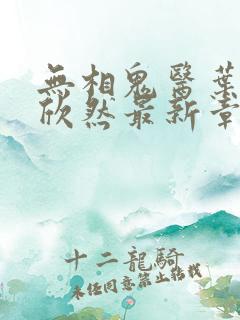 無相鬼醫葉
欣然最新章
十二龍騎
未经同意禁止转载